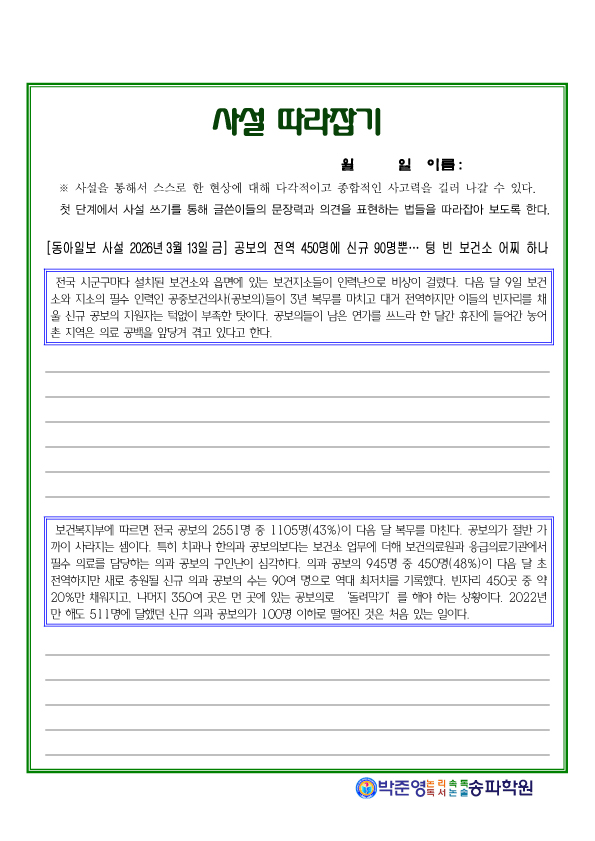 사설 따라잡기
월 일 이름:
※ 사설을 통해서 스스로 한 현상에 대해 다각적이고 종합적인 사고력을 길러 나갈 수 있다.
첫 단계에서 사설 쓰기를 통해 글쓴이들의 문장력과 의견을 표현하는 법들을 따라잡아 보도록 한다.
[동아일보 사설 2026년 3월 13일 금] 공보의 전역 450명에 신규 90명뿐… 텅 빈 보건소 어찌 하나
전국 시군구마다 설치된 보건소와 읍면에 있는 보건지소들이 인력난으로 비상이 걸렸다. 다음 달 9일 보건
소와 지소의 필수 인력인 공중보건의사(공보의)들이 3년 복무를 마치고 대거 전역하지만 이들의 빈자리를 채
울 신규 공보의 지원자는 턱없이 부족한 탓이다. 공보의들이 남은 연가를 쓰느라 한 달간 휴진에 들어간 농어
촌 지역은 의료 공백을 앞당겨 겪고 있다고 한다.
보건복지부에 따르면 전국 공보의 2551명 중 1105명(43%)이 다음 달 복무를 마친다. 공보의가 절반 가
까이 사라지는 셈이다. 특히 치과나 한의과 공보의보다는 보건소 업무에 더해 보건의료원과 응급의료기관에서
필수 의료를 담당하는 의과 공보의 구인난이 심각하다. 의과 공보의 945명 중 450명(48%)이 다음 달 초
전역하지만 새로 충원될 신규 의과 공보의 수는 90여 명으로 역대 최저치를 기록했다. 빈자리 450곳 중 약
20%만 채워지고, 나머지 350여 곳은 먼 곳에 있는 공보의로 ‘돌려막기’를 해야 하는 상황이다. 2022년
만 해도 511명에 달했던 신규 의과 공보의가 100명 이하로 떨어진 것은 처음 있는 일이다.
박준영 논리속독 독서논술 송파학원